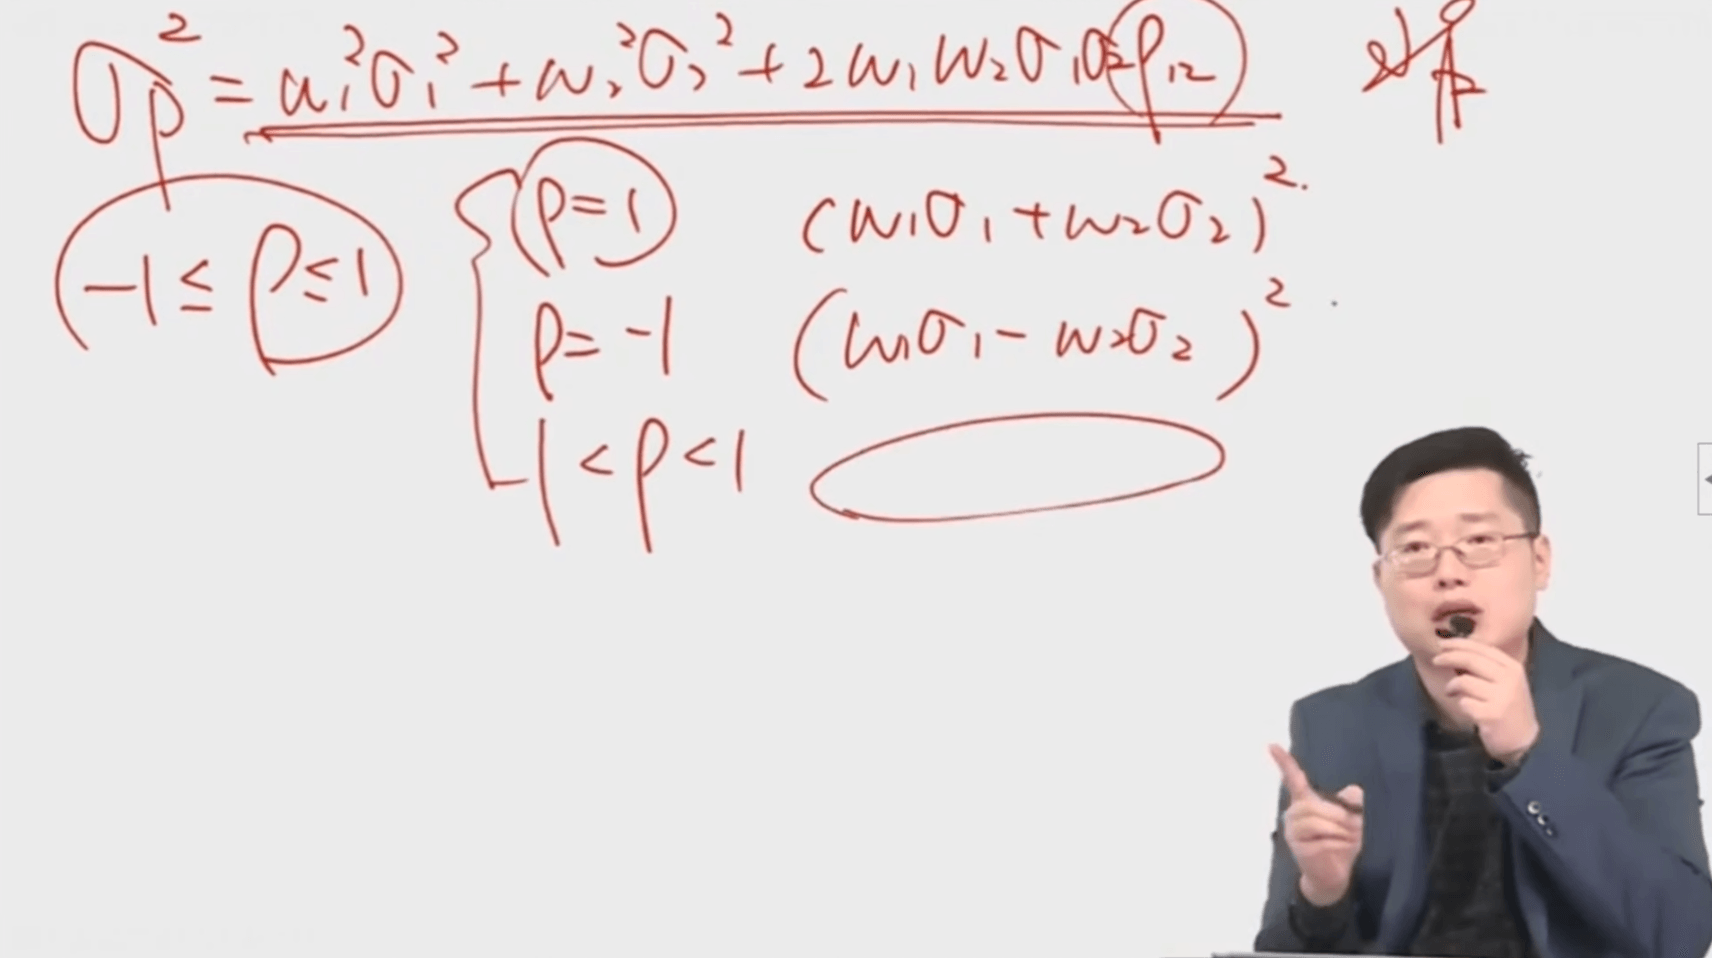 σp² = w₁²σ₁² + w₂²σ₂² + 2w₁w₂σ₁σ₂ρ₁₂
-1 ≤ ρ ≤ 1
ρ = 1 (w₁σ₁ + w₂σ₂)²
ρ = -1 (w₁σ₁ - w₂σ₂)²
-1 < ρ < 1